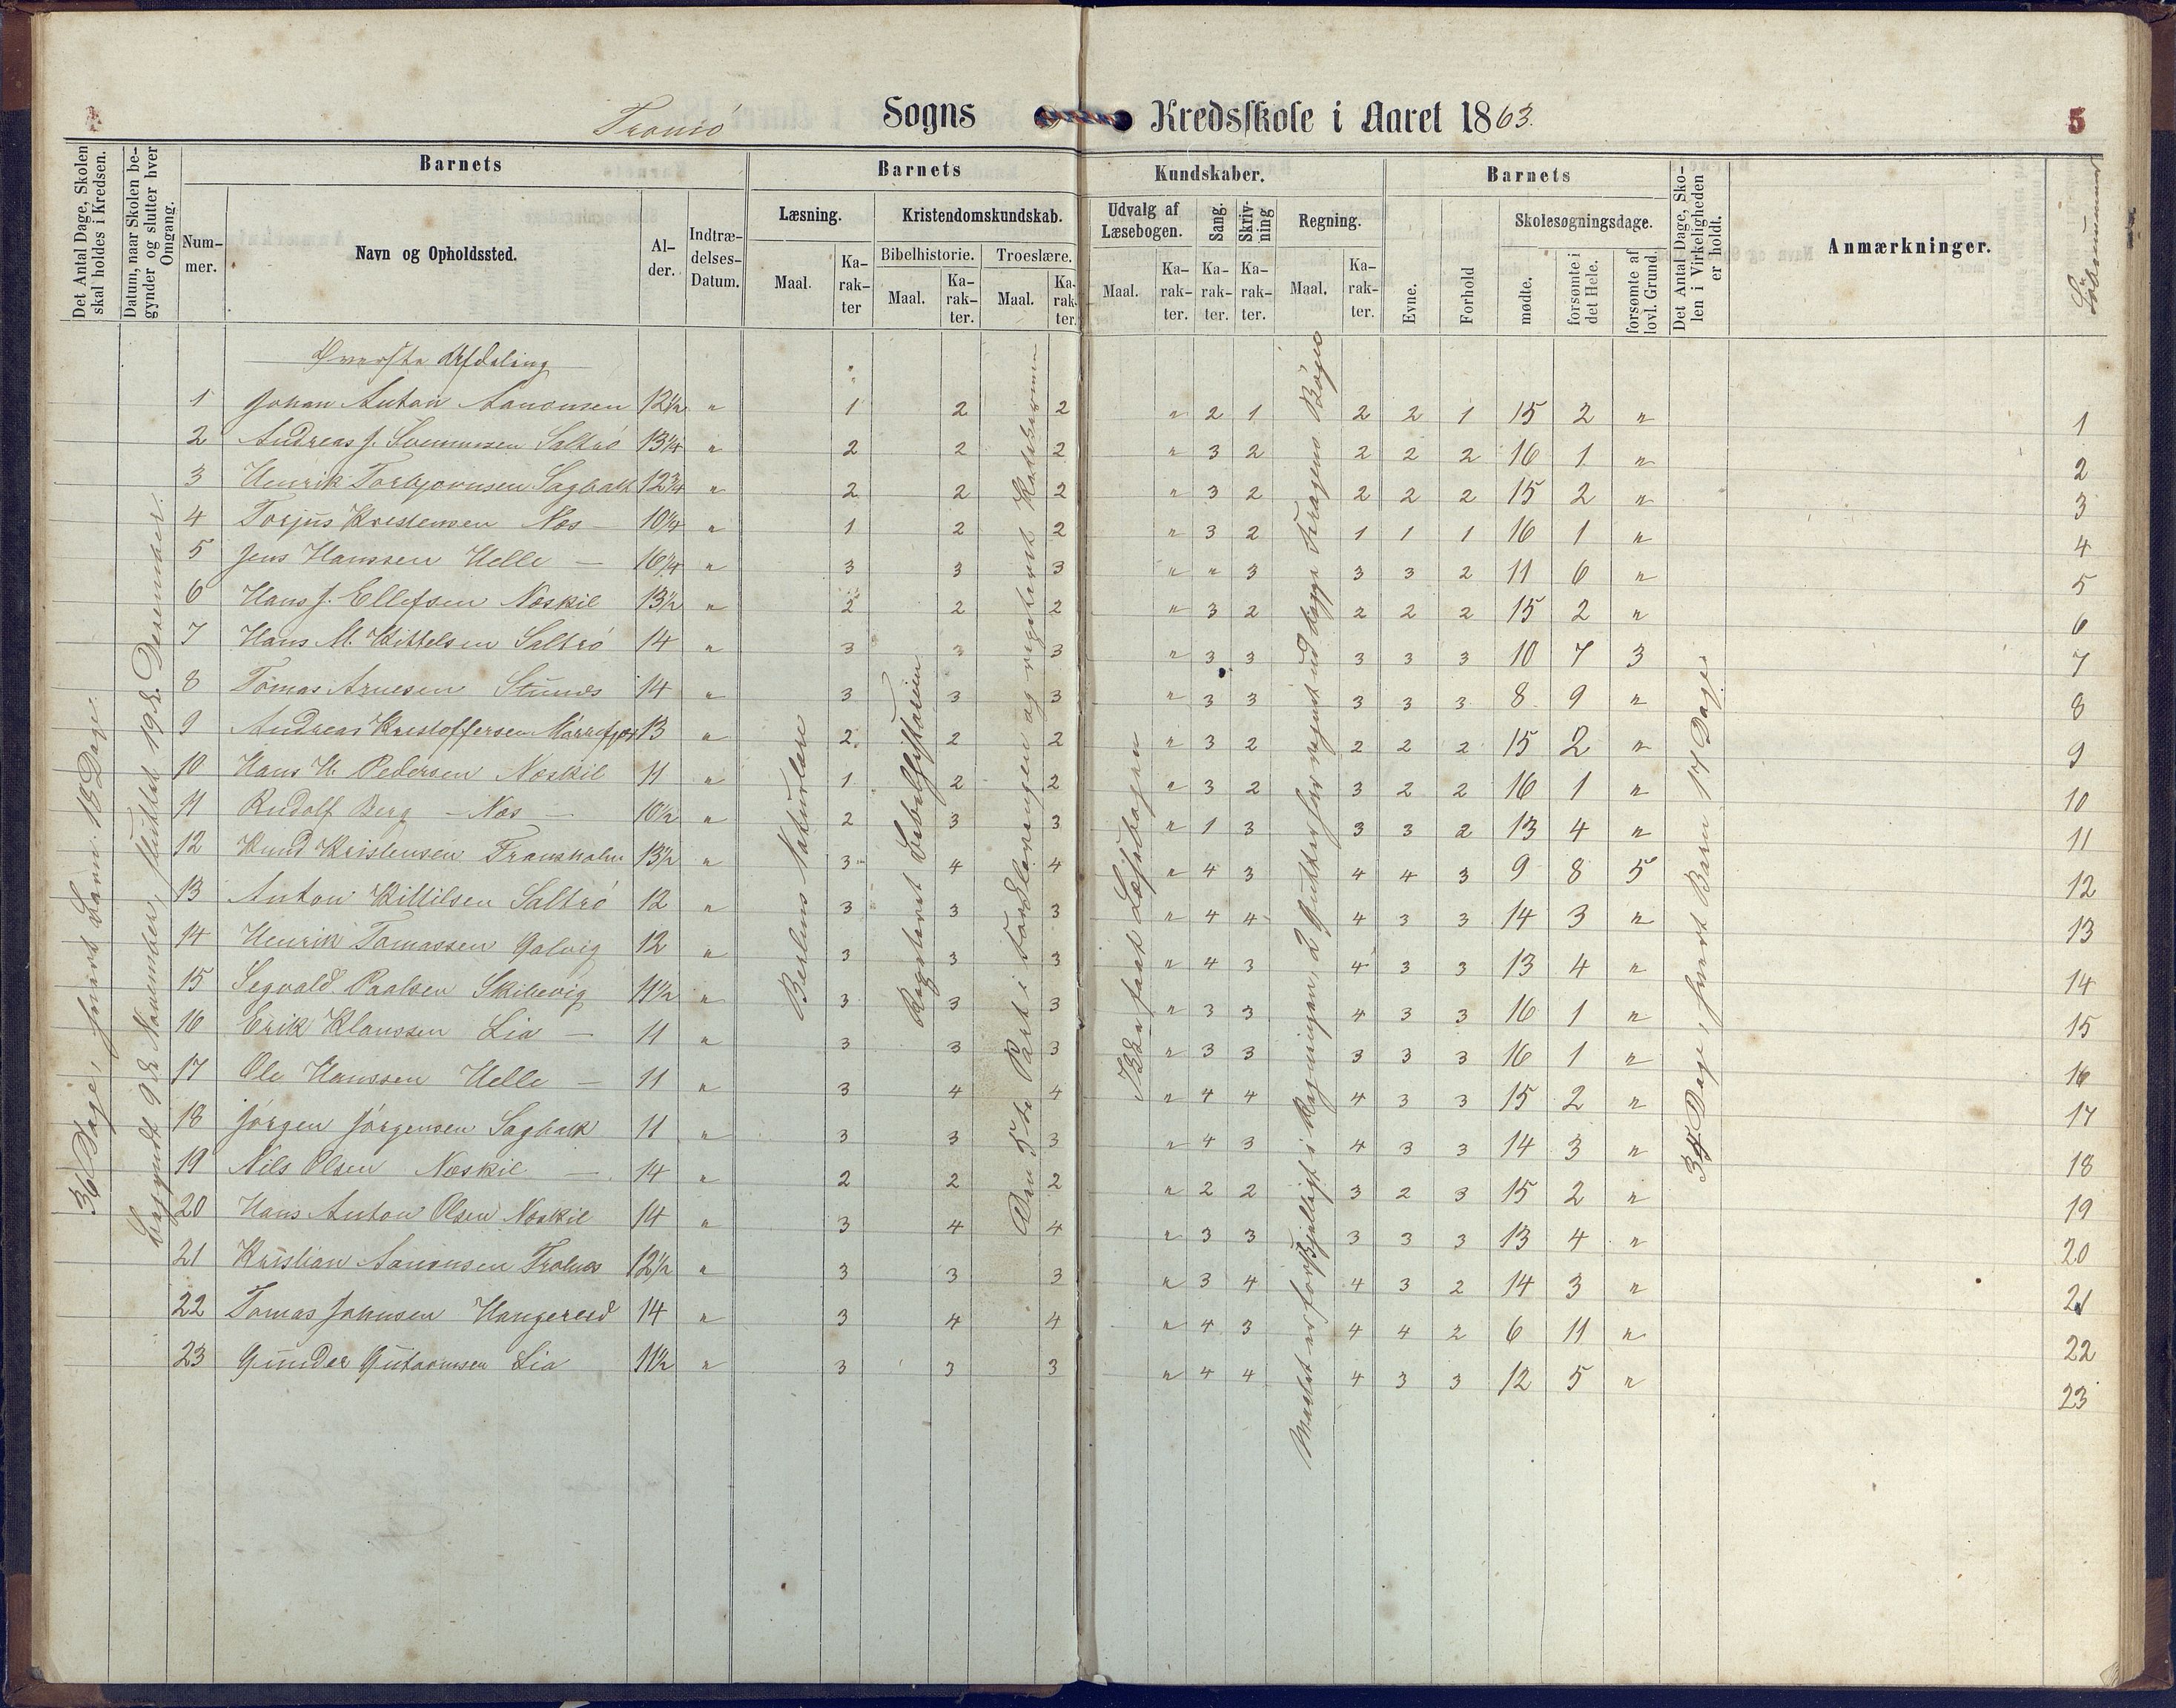 Tromö Sogns Kredsskole i Aaret 1863.
5
Det Antal Dage, Skolen skal holdes i Kredsen.
Datum, naar Skolen begynder og slutter hver Omgang.
Barnets
Nummer.
Navn og Opholdssted.
Alder.
Indtrædelses-Datum.
Barnets Kundskaber.
Læsning.
Maal.
Karakter
Kristendomskundskab.
Bibelhistorie.
Maal.
Karakter.
Troeslære.
Maal.
Karakter.
Udvalg af Læsebogen.
Maal.
Karakter.
Sang.
Karakter.
Skrivning
Karakter.
Regning.
Maal.
Karakter.
Barnets
Evne.
Forhold
Skolesøgningsdage.
mødte.
forsømte i det Hele.
forsømte af lovl. Grund.
Det Antal Dage, Skolen i Virkeligheden er holdt.
Anmærkninger.
Löbenummer
36 Dage, hvert Barn 18 Dage.
Begyndt 9de November, sluttet 19de December.
Øverste Afdeling
1 Johan Anton Aanonsen 12½ " 1 2 2 " 2 1 2 2 1 15 2 " 1
2 Andreas J. Svennusen Saltrö 13¼ " 2 2 2 " 3 2 2 2 2 16 1 " 2
3 Henrik Torbjornsen Sagbakk 12¾ " 2 2 2 " 3 2 2 2 2 15 2 " 3
4 Torjus Kristensen Næs 10¼ " 1 2 2 " 3 2 1 1 1 16 1 " 4
5 Jens Hanssen Helle – 16¼ " 3 3 3 " " 3 3 3 2 11 6 " 5
6 Hans J. Ellefsen Næskil 13½ " 2 2 2 " 3 2 2 2 2 15 2 " 6
7 Hans M. Kittelsen Saltrö 14 " 3 3 3 " 3 3 3 3 3 10 7 3 7
8 Tomas Arnesen Stuenes 14 " 3 3 3 " 3 3 3 3 3 8 9 " 8
9 Andreas Kristoffersen Mærrefjær 13 " 2 2 2 " 3 2 2 2 2 15 2 " 9
10 Hans H. Pedersen Næskil 11 " 1 2 2 " 3 2 3 2 2 16 1 " 10
11 Rudolf Berg – Næs – 10½ " 2 3 3 " 1 3 3 3 2 13 4 " 11
12 Knud Kristensen Fransholm 13½ " 3 4 4 " 4 3 4 4 3 9 8 5 12
13 Anton Kittilsen Saltrö 12 " 3 3 3 " 4 4 4 3 3 14 3 " 13
14 Henrik Tomassen Galvig 12 " 3 3 3 " 4 3 4 3 3 13 4 " 14
15 Segvald Paalsen Skibevig 11½ " 3 3 3 " 3 3 4 3 3 16 1 " 15
16 Erik Klaussen Lia – 11 " 3 3 3 " 3 3 3 3 3 16 1 " 16
17 Ole Hanssen Helle – 11 " 3 4 4 " 4 4 4 3 3 15 2 " 17
18 Jörgen Jörgensen Sagbakk 11 " 3 3 3 " 4 3 4 3 3 14 3 " 18
19 Nils Olsen Næskil – 14 " 2 2 2 " 2 2 3 2 3 15 2 " 19
20 Hans Anton Olsen Næskil 14 " 3 4 4 " 3 3 3 3 3 13 4 " 20
21 Kristian Aanonsen 12½ " 3 3 3 " 3 4 4 3 2 14 3 " 21
22 Tomas Johnsen Hangereid 14 " 3 4 4 " 4 3 4 4 2 6 11 " 22
23 Gunder Guttormsen Lia 11½ " 3 3 3 " 4 4 4 3 3 12 5 " 23
Berlins Naturlære
Repeteret Bibelhistorien
Den 5te Part i Forklaringen og repeteret Katekismen
Ikke havt Læsebogen
Maalet er forskjelligt i Regningen, 2 Gutter har regnet ud begge Bøger
34 Dage, hvert Barn 17 Dage